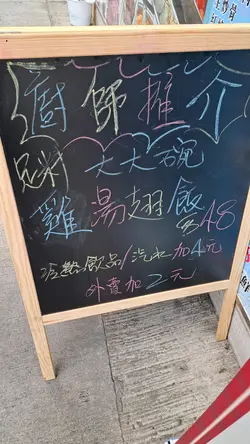 廚師推介
足料 大大碗
雞湯翅飯 $48
冷熱飲品/汽水 加4元
外賣加2元